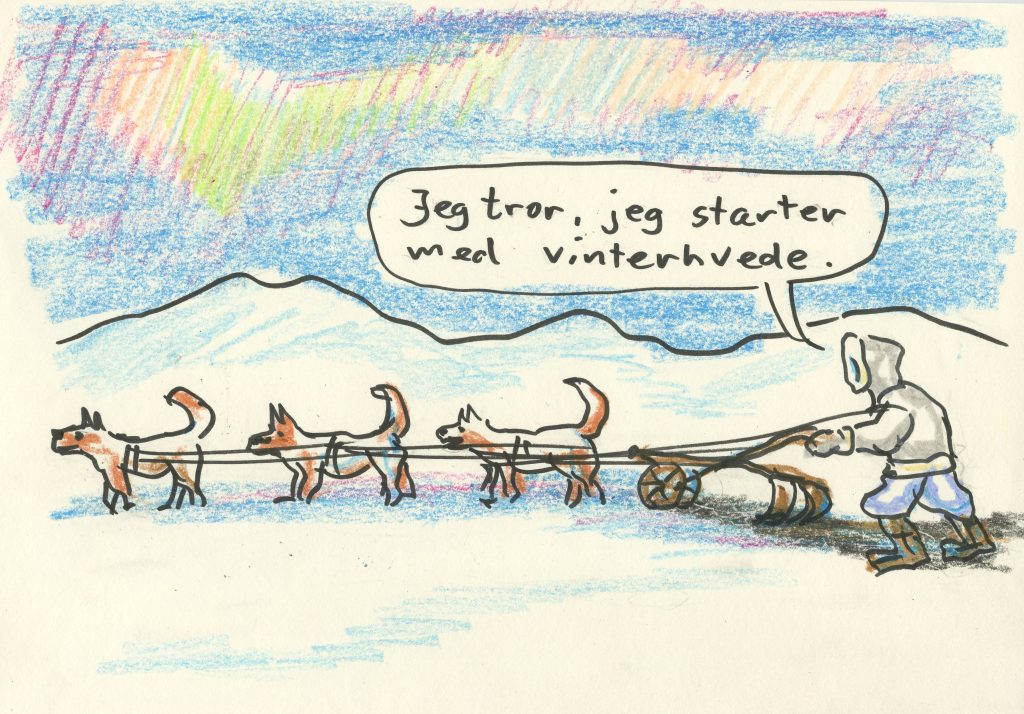 Jeg tror, jeg starter
med vinterhvede.